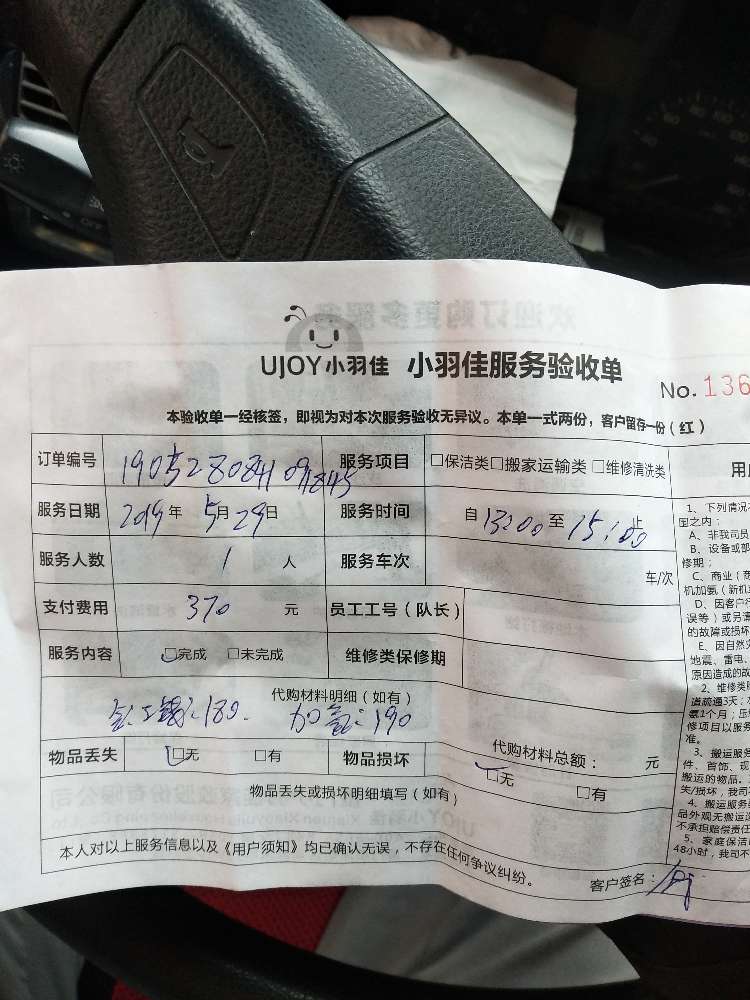 欢迎订购更多服务
UJOY小羽佳 小羽佳服务验收单
No. 136
本验收单一经核签，即视为对本次服务验收无异议。本单一式两份，客户留存一份（红）
订单编号 服务项目 □保洁类□搬家运输类□维修清洗类
服务日期 2019年 5月29日 服务时间 自 13:00 至 15:00 止
服务人数 1 人 服务车次 车/次
支付费用 370 元 员工工号（队长）
服务内容 □完成 □未完成 维修类保修期
代购材料明细（如有）
180. 加氨:190
代购材料总额： 元
物品丢失 □无 □有 物品损坏 □无 □有
物品丢失或损坏明细填写（如有）
本人对以上服务信息以及《用户须知》均已确认无误，不存在任何争议纠纷。
客户签名：
1、下列情况
国之内：
A、非我司员
B、设备或部
修期；
C、商业（商
机加氨（新机
D、因客户
误等）或另
的故障或损坏
E、因自然
地震、雷电、
原因造成的故
2、维修类
道疏通3天；
氨1个月；压
修项目以服务
准。
3、搬运服
件、首饰、现
搬运的物品，
失/损坏，我司
4、搬运服务
品外观无搬运
不承担赔偿责任
5、家庭保洁
48小时，我司不